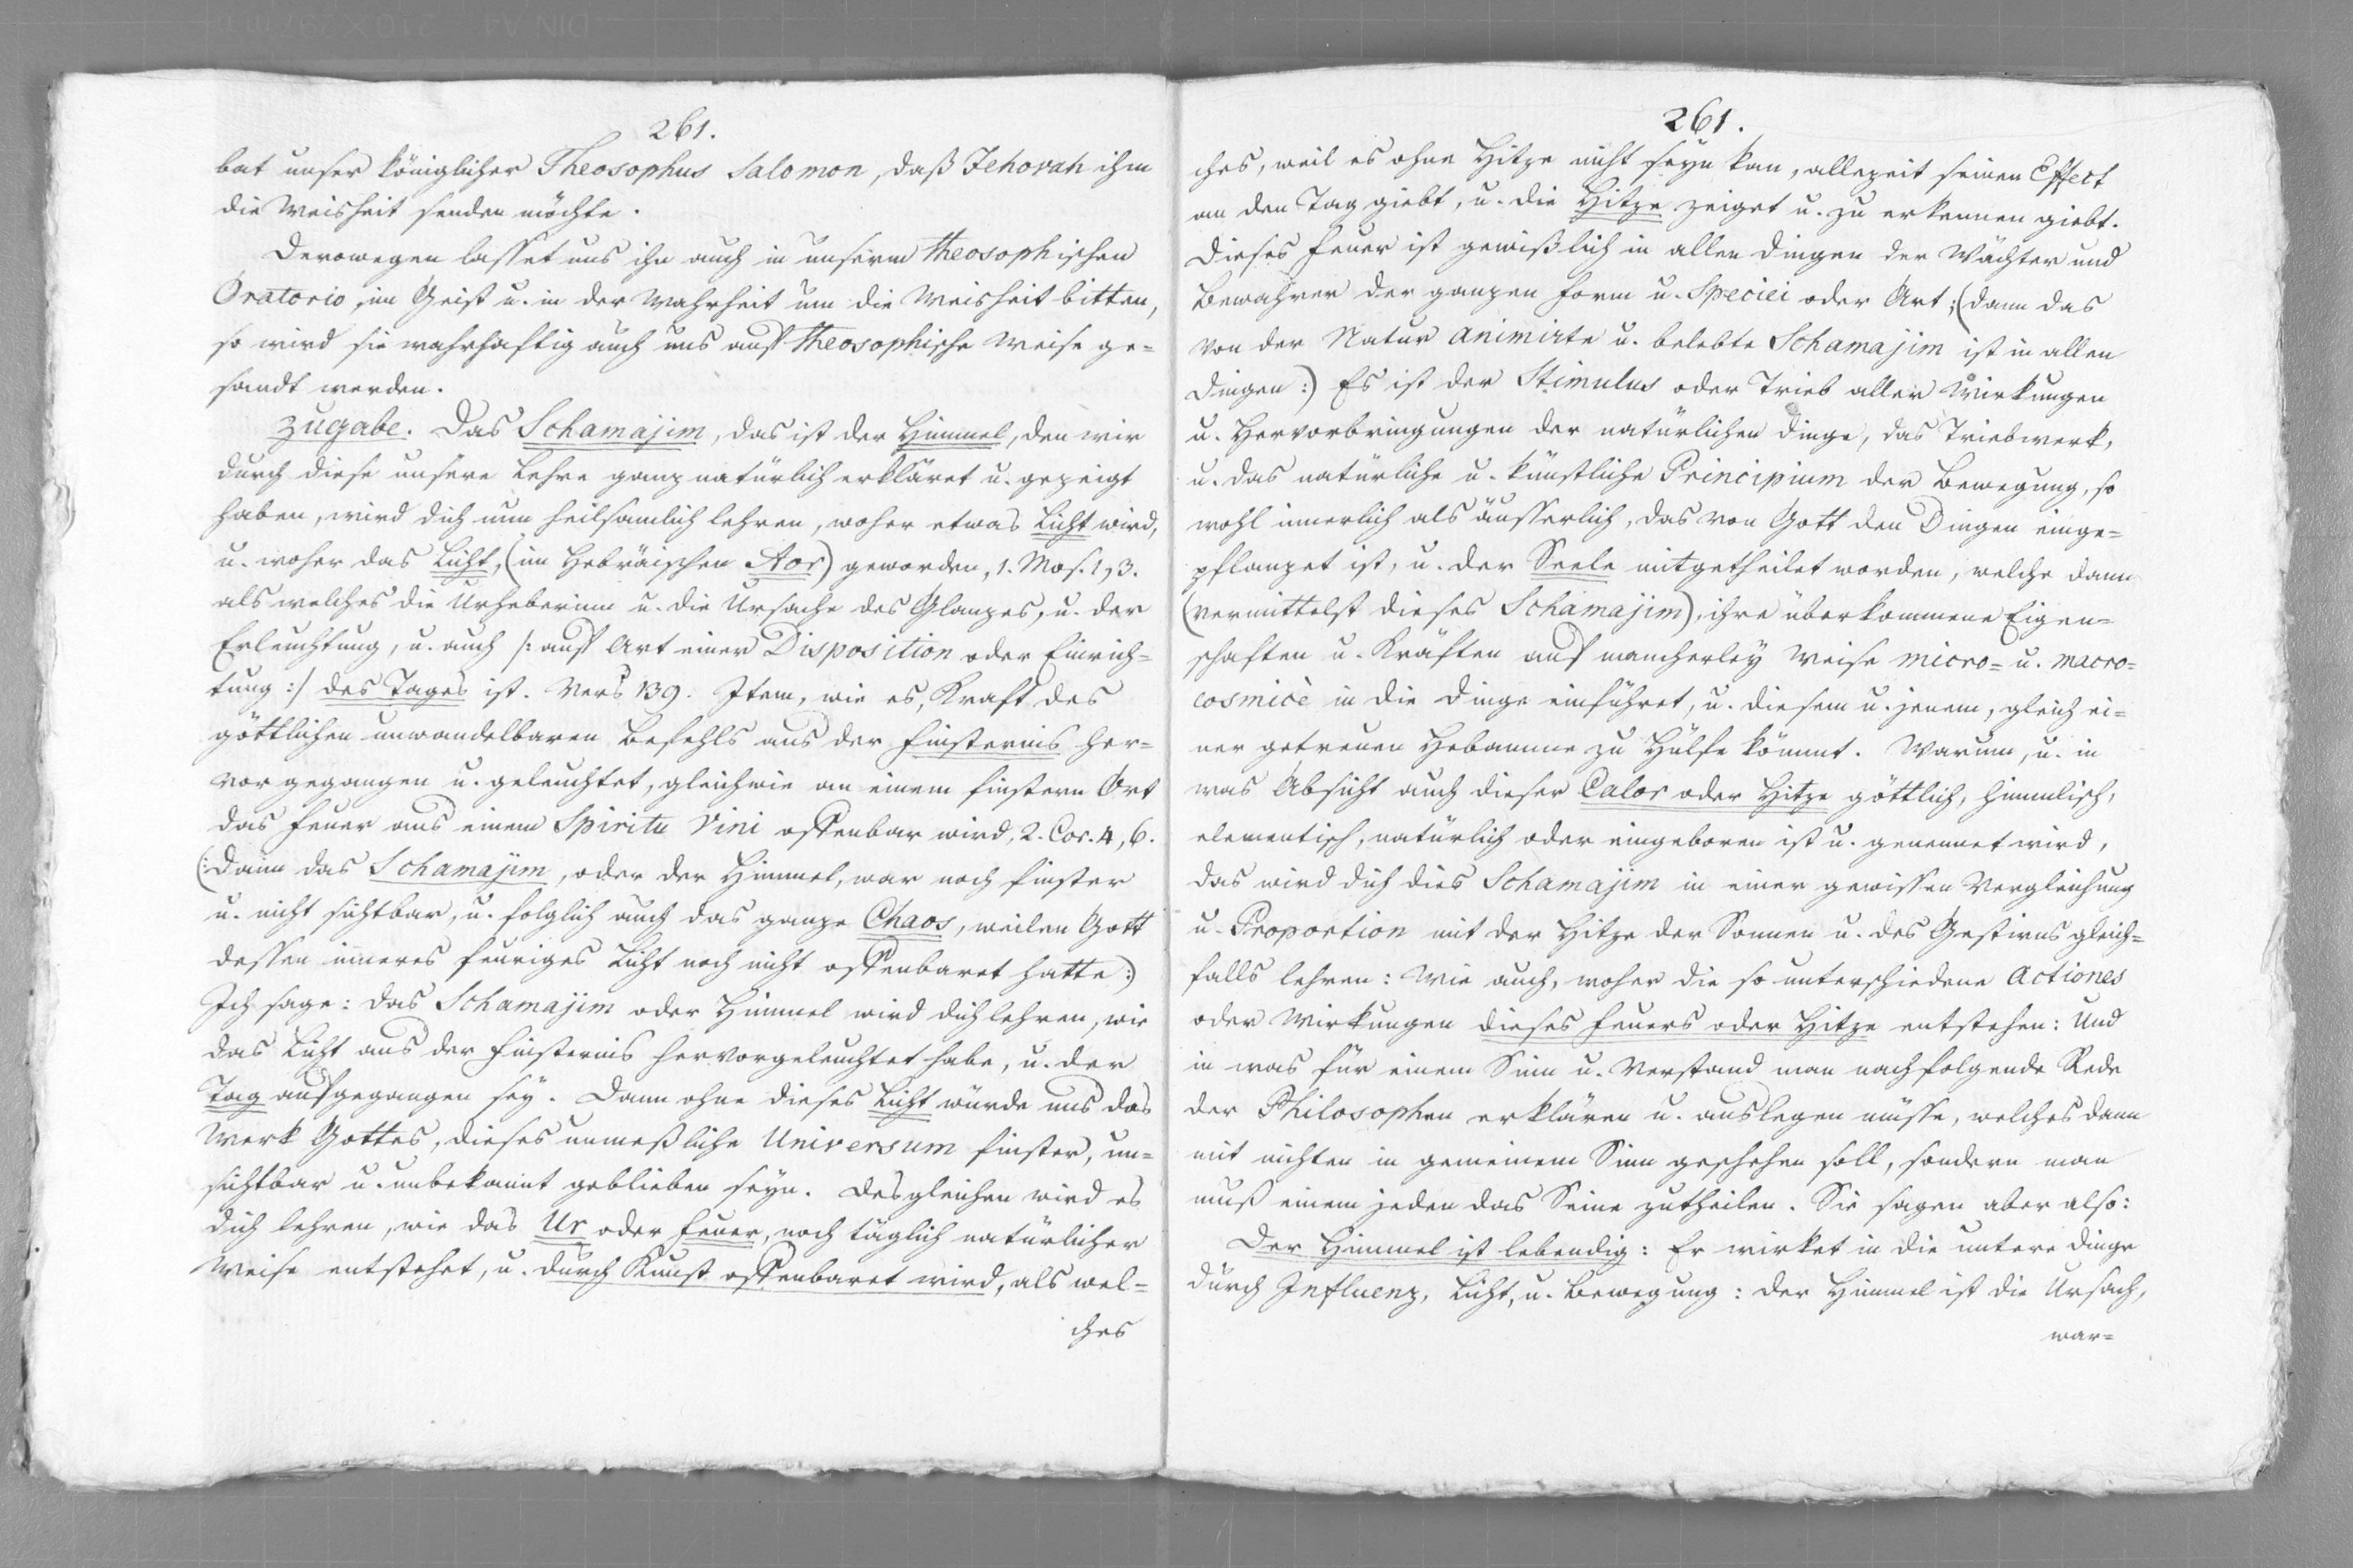 261.
bat unser königlicher Theosophus Salomon, daß Jehovah ihm
die Weisheit senden möchte.
Derowegen lasset uns ihn auch in unserm theosophischen
Oratorio, im Geist u. in der Wahrheit um die Weisheit bitten,
so wird sie wahrhaftig auch uns auf theosophische Weise ge=
sandt werden.
Zugabe. Das Schamajim, das ist der Himmel, den wir
durch diese unsere Lehre ganz natürlich erkläret u. gezeigt
haben, wird dich nun heilsamlich lehren, woher etwas Licht wird,
u. woher das Licht, (im Hebräischen Aor) geworden, 1. Mos. 1, 3.
als welches die Urheberinn u. die Ursache des Glanzes, u. der
Erleuchtung, u. auch /: auf Art einer Disposition oder Einrich=
tung :/ des Tages ist. Vers 139. Item, wie es, Kraft des
göttlichen unwandelbaren Befehls aus der Finsternis her=
vor gegangen u. geleuchtet, gleichwie an einem finstern Ort
das Feuer aus einem Spiritu Vini offenbar wird, 2. Cor. 4, 6.
(: Dann das Schamajim, oder der Himmel, war noch finster
u. nicht sichtbar, u. folglich auch das ganze Chaos, weilen Gott
dessen inneres feuriges Licht noch nicht offenbaret hatte :)
Ich sage: das Schamajim oder Himmel wird dich lehren, wie
das Licht aus der Finsternis hervorgeleuchtet habe, u. der
Tag aufgegangen sey. Dann ohne dieses Licht würde uns das
Werk Gottes, dieses unmeßliche Universum finster, un=
sichtbar u. unbekannt geblieben seyn. Desgleichen wird es
dich lehren, wie das Ur oder Feuer, noch täglich natürlicher
Weise entstehet, u. durch Kunst offenbaret wird, als wel=
ches
261.
ches, weil es ohne Hitze nicht seyn kan, allezeit seinen Effect
an den Tag giebt, u. die Hitze zeiget u. zu erkennen giebt.
Dieses Feuer ist gewißlich in allen Dingen der Wächter und
Bewahrer der ganzen Form u. Speciei oder Art; (dann das
von der Natur animirte u. belebte Schamajim ist in allen
Dingen :) Es ist der Stimulus oder Trieb aller Wirkungen
u. Hervorbringungen der natürlichen Dinge, das Triebwerk,
u. das natürliche u. künstliche Principium der Bewegung, so
wohl innerlich als äusserlich, das von Gott den Dingen einge=
pflanzet ist, u. der Seele mitgetheilet worden, welche dann
(vermittelst dieses Schamajim), ihre überkommene Eigen=
schaften u. Kräften auf mancherley Weise micro= u. macro=
cosmicè in die Dinge einführet, u. diesem u. jenem, gleich ei=
ner getreuen Hebamme zu Hülfe kömmt. Warum, u. in
was Absicht auch dieser Calor oder Hitze göttlich, himmlisch,
elementisch, natürlich oder eingeboren ist u. genennet wird,
das wird dich dies Schamajim in einer gewissen Vergleichung
u. Proportion mit der Hitze der Sonnen u. des Gestirns gleich=
falls lehren: Wie auch, woher die so unterschiedene Actiones
oder Wirkungen dieses Feuers oder Hitze entstehen: Und
in was für einem Sinn u. Verstand man nachfolgende Rede
der Philosophen erklären u. auslegen müsse, welches dann
mit nichten in gemeinem Sinn geschehen soll, sondern man
muß einem jeden das Seine zutheilen. Sie sagen aber also:
Der Himmel ist lebendig: Er wirket in die untere Dinge
durch Influenz, Licht, u. Bewegung: der Himmel ist die Ursach,
war=